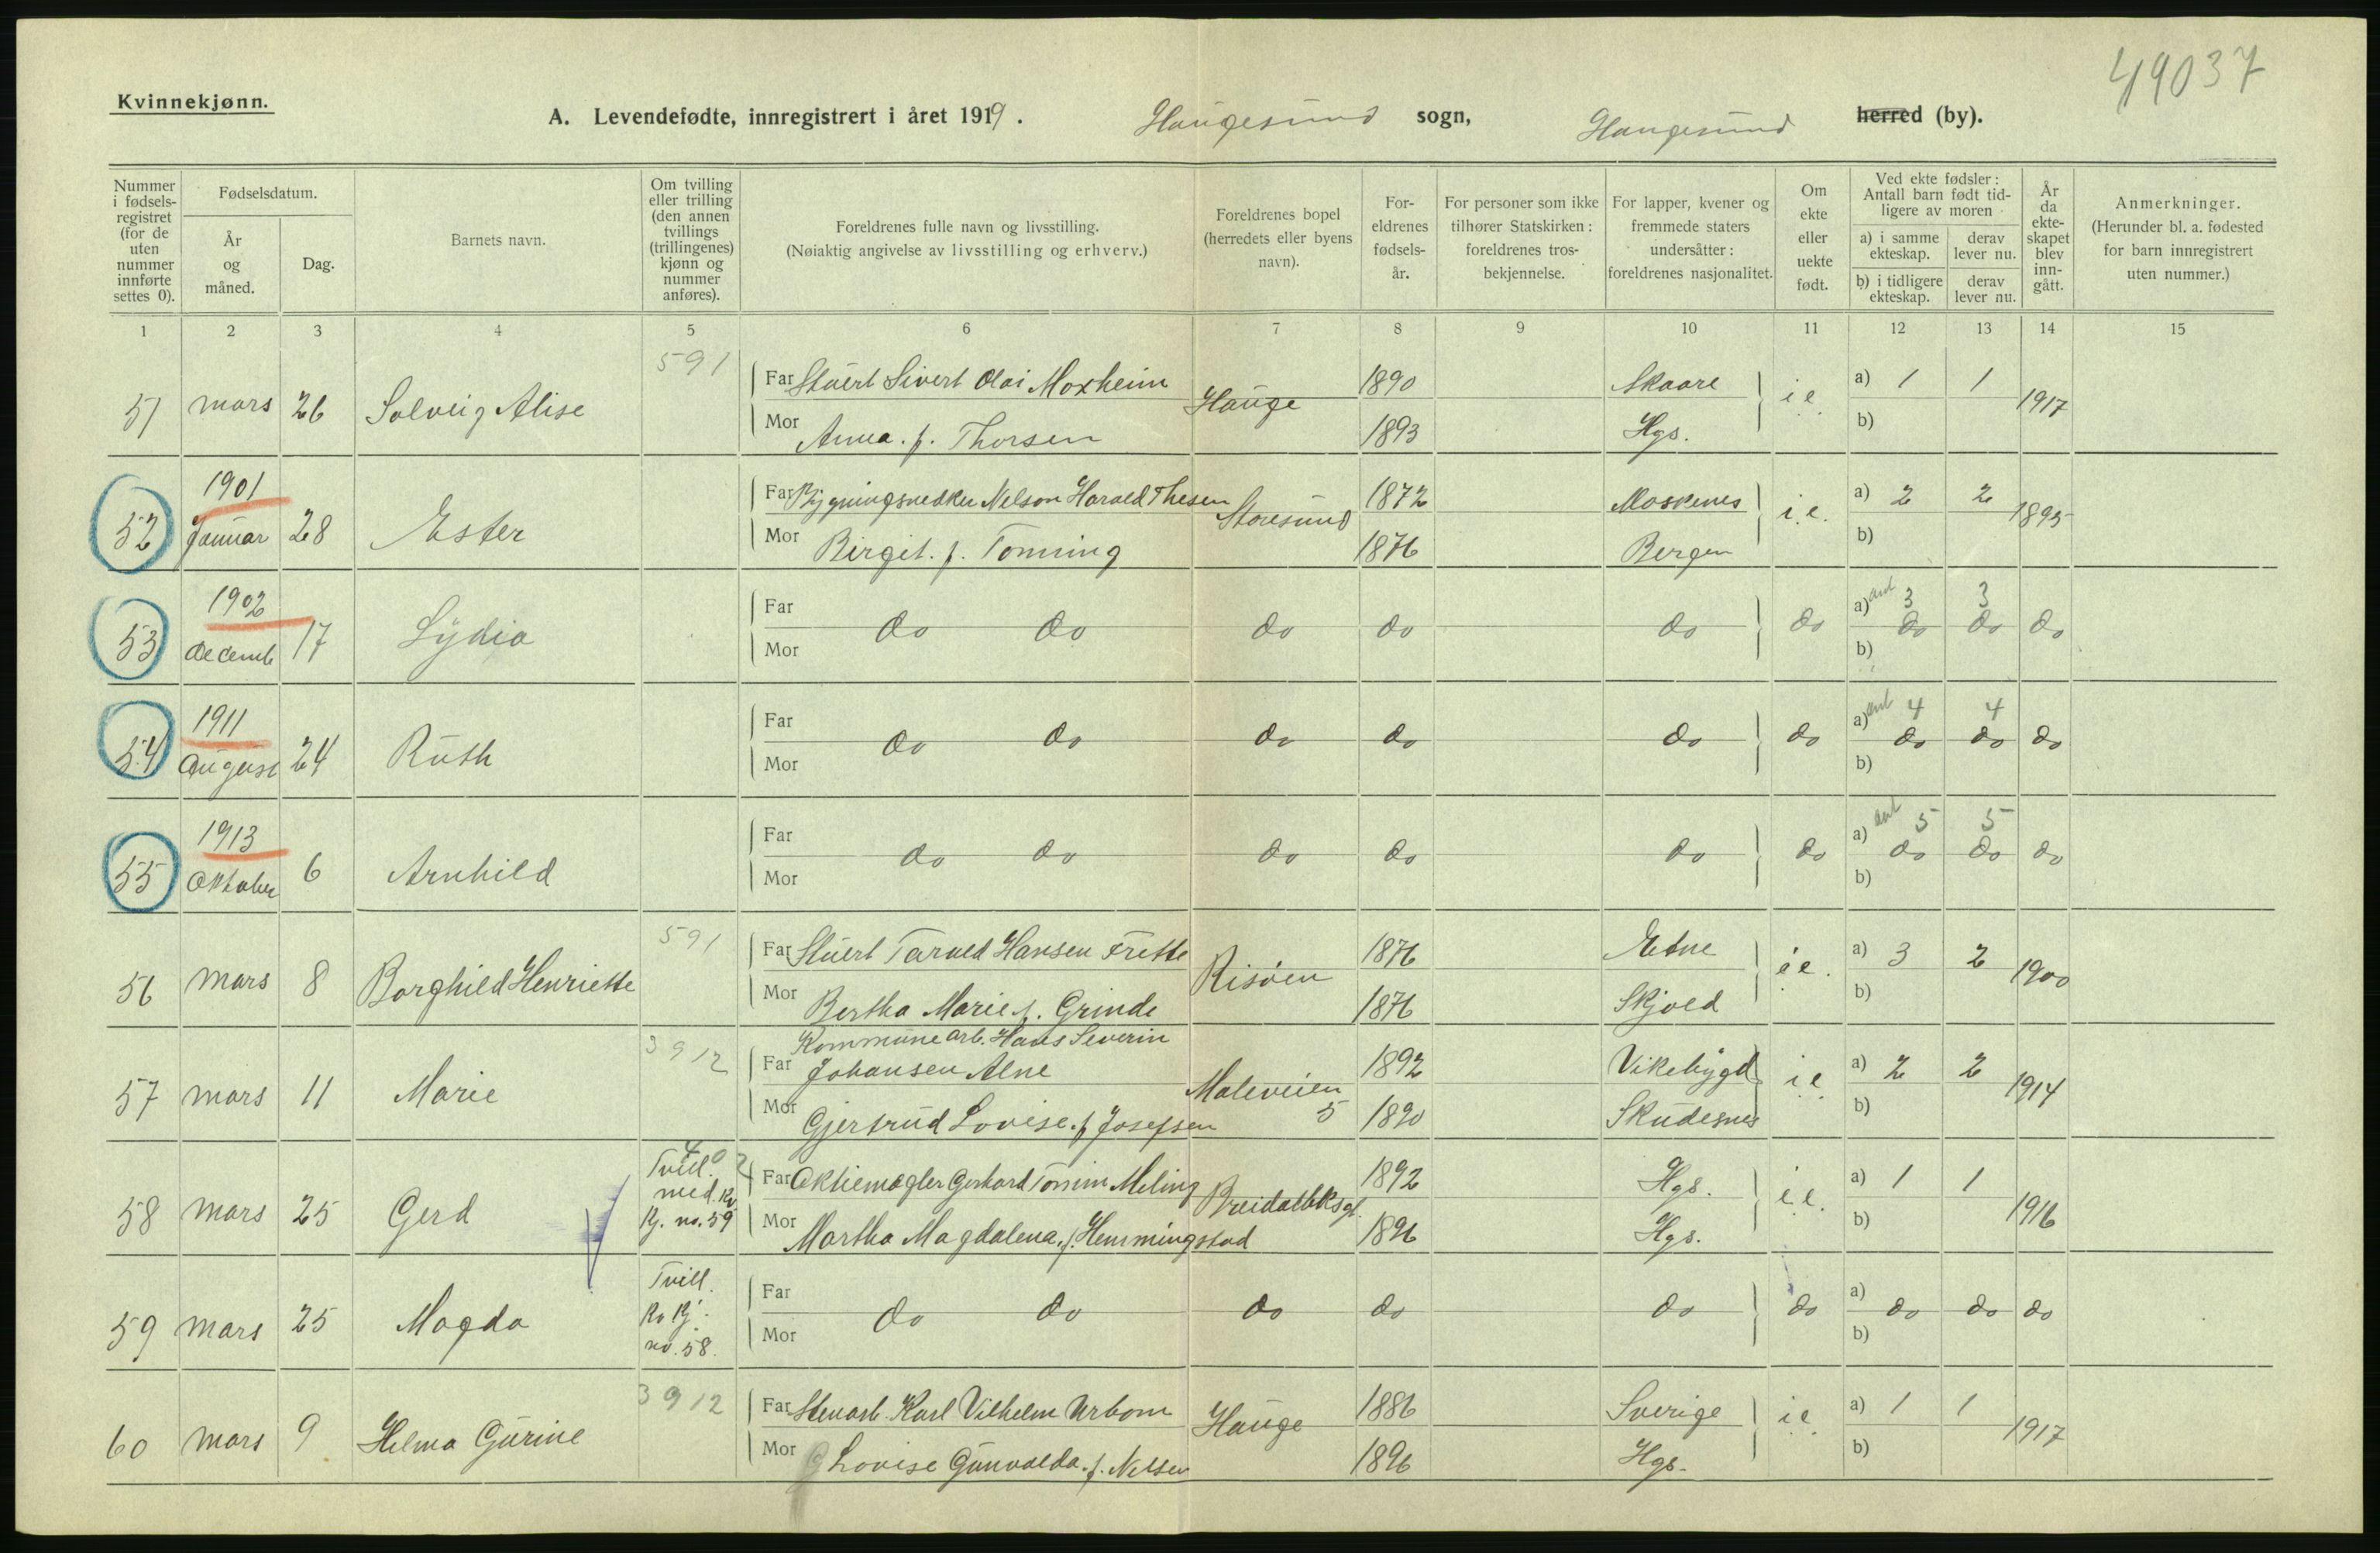 49037
Kvinnekjønn.
A. Levendefødte, innregistrert i året 1919. Haugesund sogn, Haugesund herred (by).
Nummer i fødsels-registret (for de uten nummer innførte settes 0).
Fødselsdatum.
År og måned.
Dag.
Barnets navn.
Om tvilling eller trilling (den annen tvillings (trillingenes) kjønn og nummer anføres).
Foreldrenes fulle navn og livsstilling.
(Nøiaktig angivelse av livsstilling og erhverv.)
Foreldrenes bopel (herredets eller byens navn).
For-eldrenes fødsels-år.
For personer som ikke tilhører Statskirken: foreldrenes tros-bekjennelse.
For lapper, kvener og fremmede staters undersåtter: foreldrenes nasjonalitet.
Om ekte eller uekte født.
Ved ekte fødsler: Antall barn født tid-ligere av moren
a) i samme ekteskap.
derav lever nu.
b) i tidligere ekteskap.
derav lever nu.
År da ekte-skapet blev inn-gått.
Anmerkninger.
(Herunder bl. a. fødested for barn innregistrert uten nummer.)
1 2 3 4 5 6 7 8 9 10 11 12 13 14 15
591
51 mars 26 Solveig Alise
Far Stuert Sivert Olai Moxheim Hauge 1890 Skaare i.e. a) 1 1 1917
Mor Anna. f. Thorsen 1893 Hgs. b)
1901
52 Januar 28 Ester
Far Nelson Harald Thesen Storesund 1872 Moskenes i.e. a) 2 2 1895
Mor Birgit. f. Tonning 1876 Bergen b)
1902
53 decemb 17 Lydia
Far do do do do do do a) ant 3 do 3 do do
Mor b)
1911
54 August 24 Ruth
Far do do do do do do a) ant 4 do 4 do do
Mor b)
1913
55 Oktober 6 Arnhild
Far do do do do do do a) ant 5 do 5 do do
Mor b)
591
56 mars 8 Borghild Henriette
Far Stuert Tarald Hansen Frette Risöen 1876 Etne i.e. a) 3 2 1900
Mor Bertha Marie f. Grinde 1876 Skjold b)
3912
57 mars 11 Marie
Kommune arb. Hans Severin
Far Johansen Alne Maleveien 5 1892 Vikebygd i.e. a) 2 2 1914
Mor Gjertrud Lovise. f Josefsen 1890 Skudesnes b)
58 mars 25 Gerd Tvill. med. Kv Kj. no. 59
Far Aktiemægler Gerhard Meling 1892 Hgs. i.e. a) 1 1 1916
Mor Martha Magdalena. f. Hemmingstad 1896 Hgs. b)
59 mars 25 Magda Tvill. Kv Kj. no. 58.
Far do do do do do do a) do do do
Mor b)
3912
60 mars 9 Helma Gurine
Far Stenarb. Karl Vilhelm Urbom Hauge 1886 Sverige i.e. a) 1 1 1917
Mor Lovise Gunvalda. f. Nilsen 1896 Hgs. b)